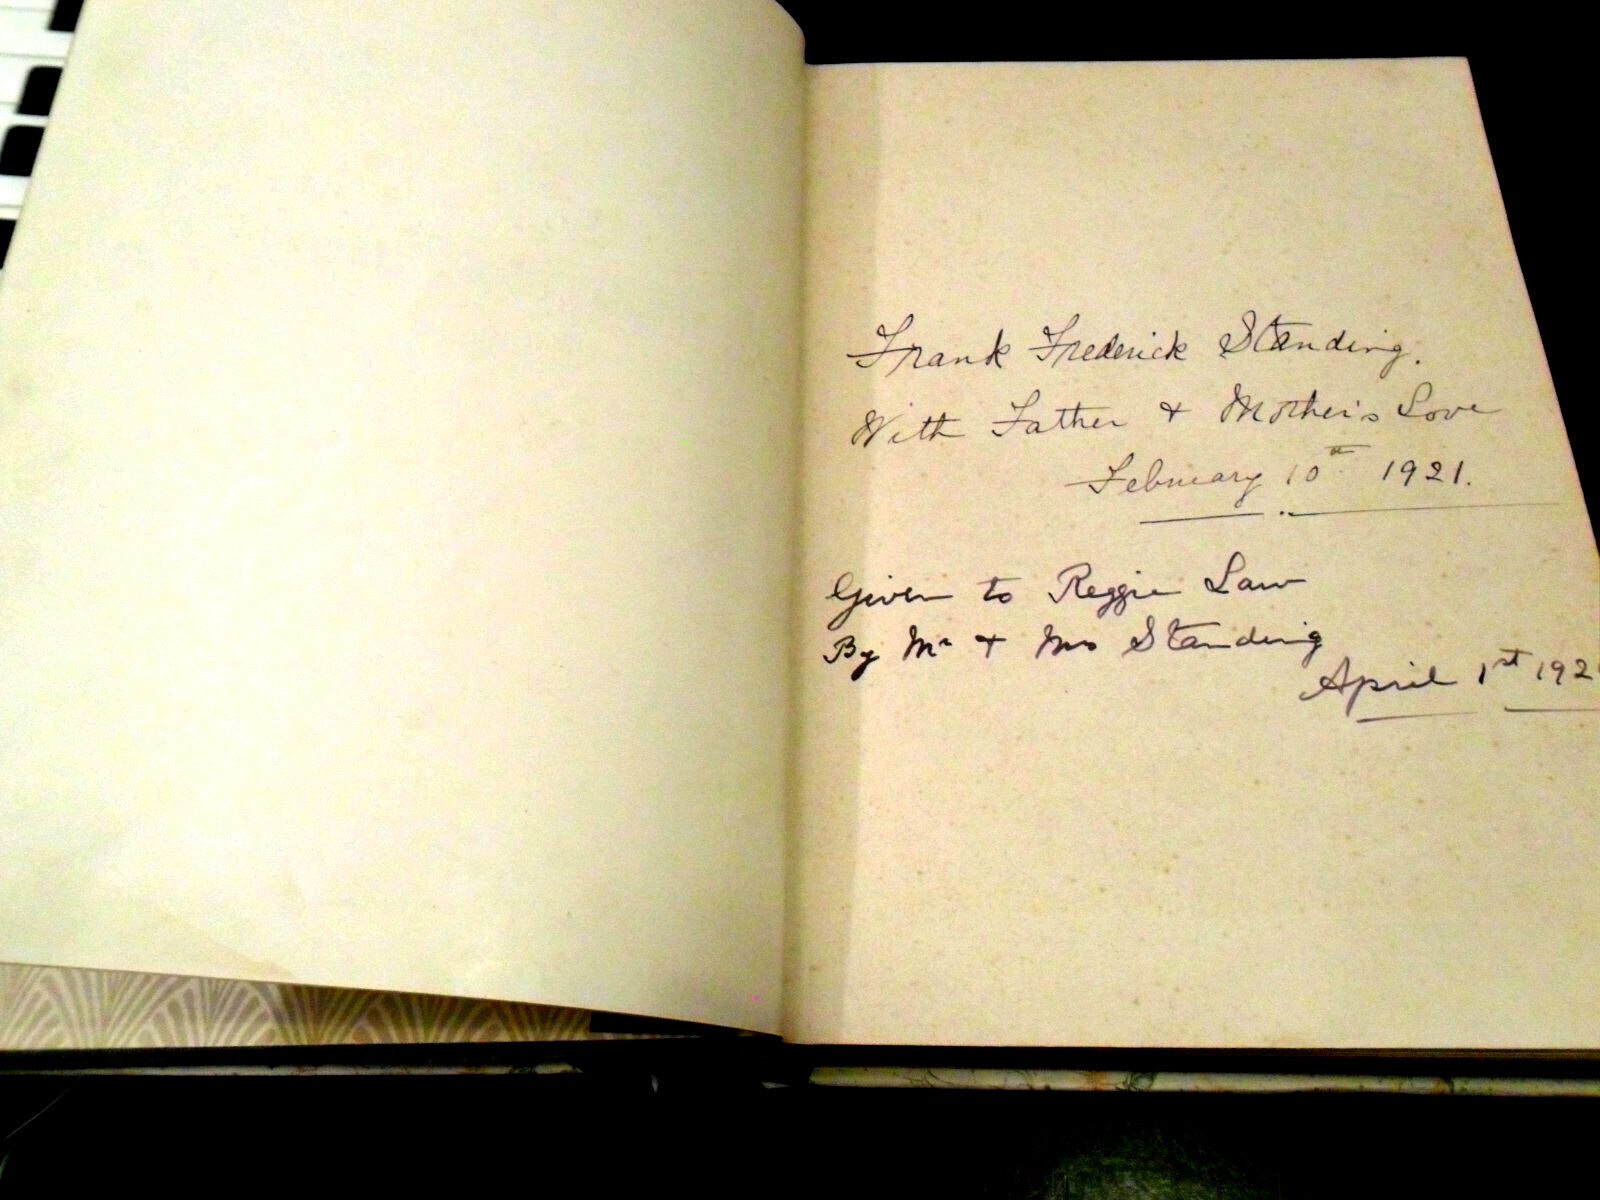 Frank Frederick Standing.
With Father & Mother's Love
February 10th 1921.
Given to Reggie Law
By Mr & Mrs Standing
April 1st